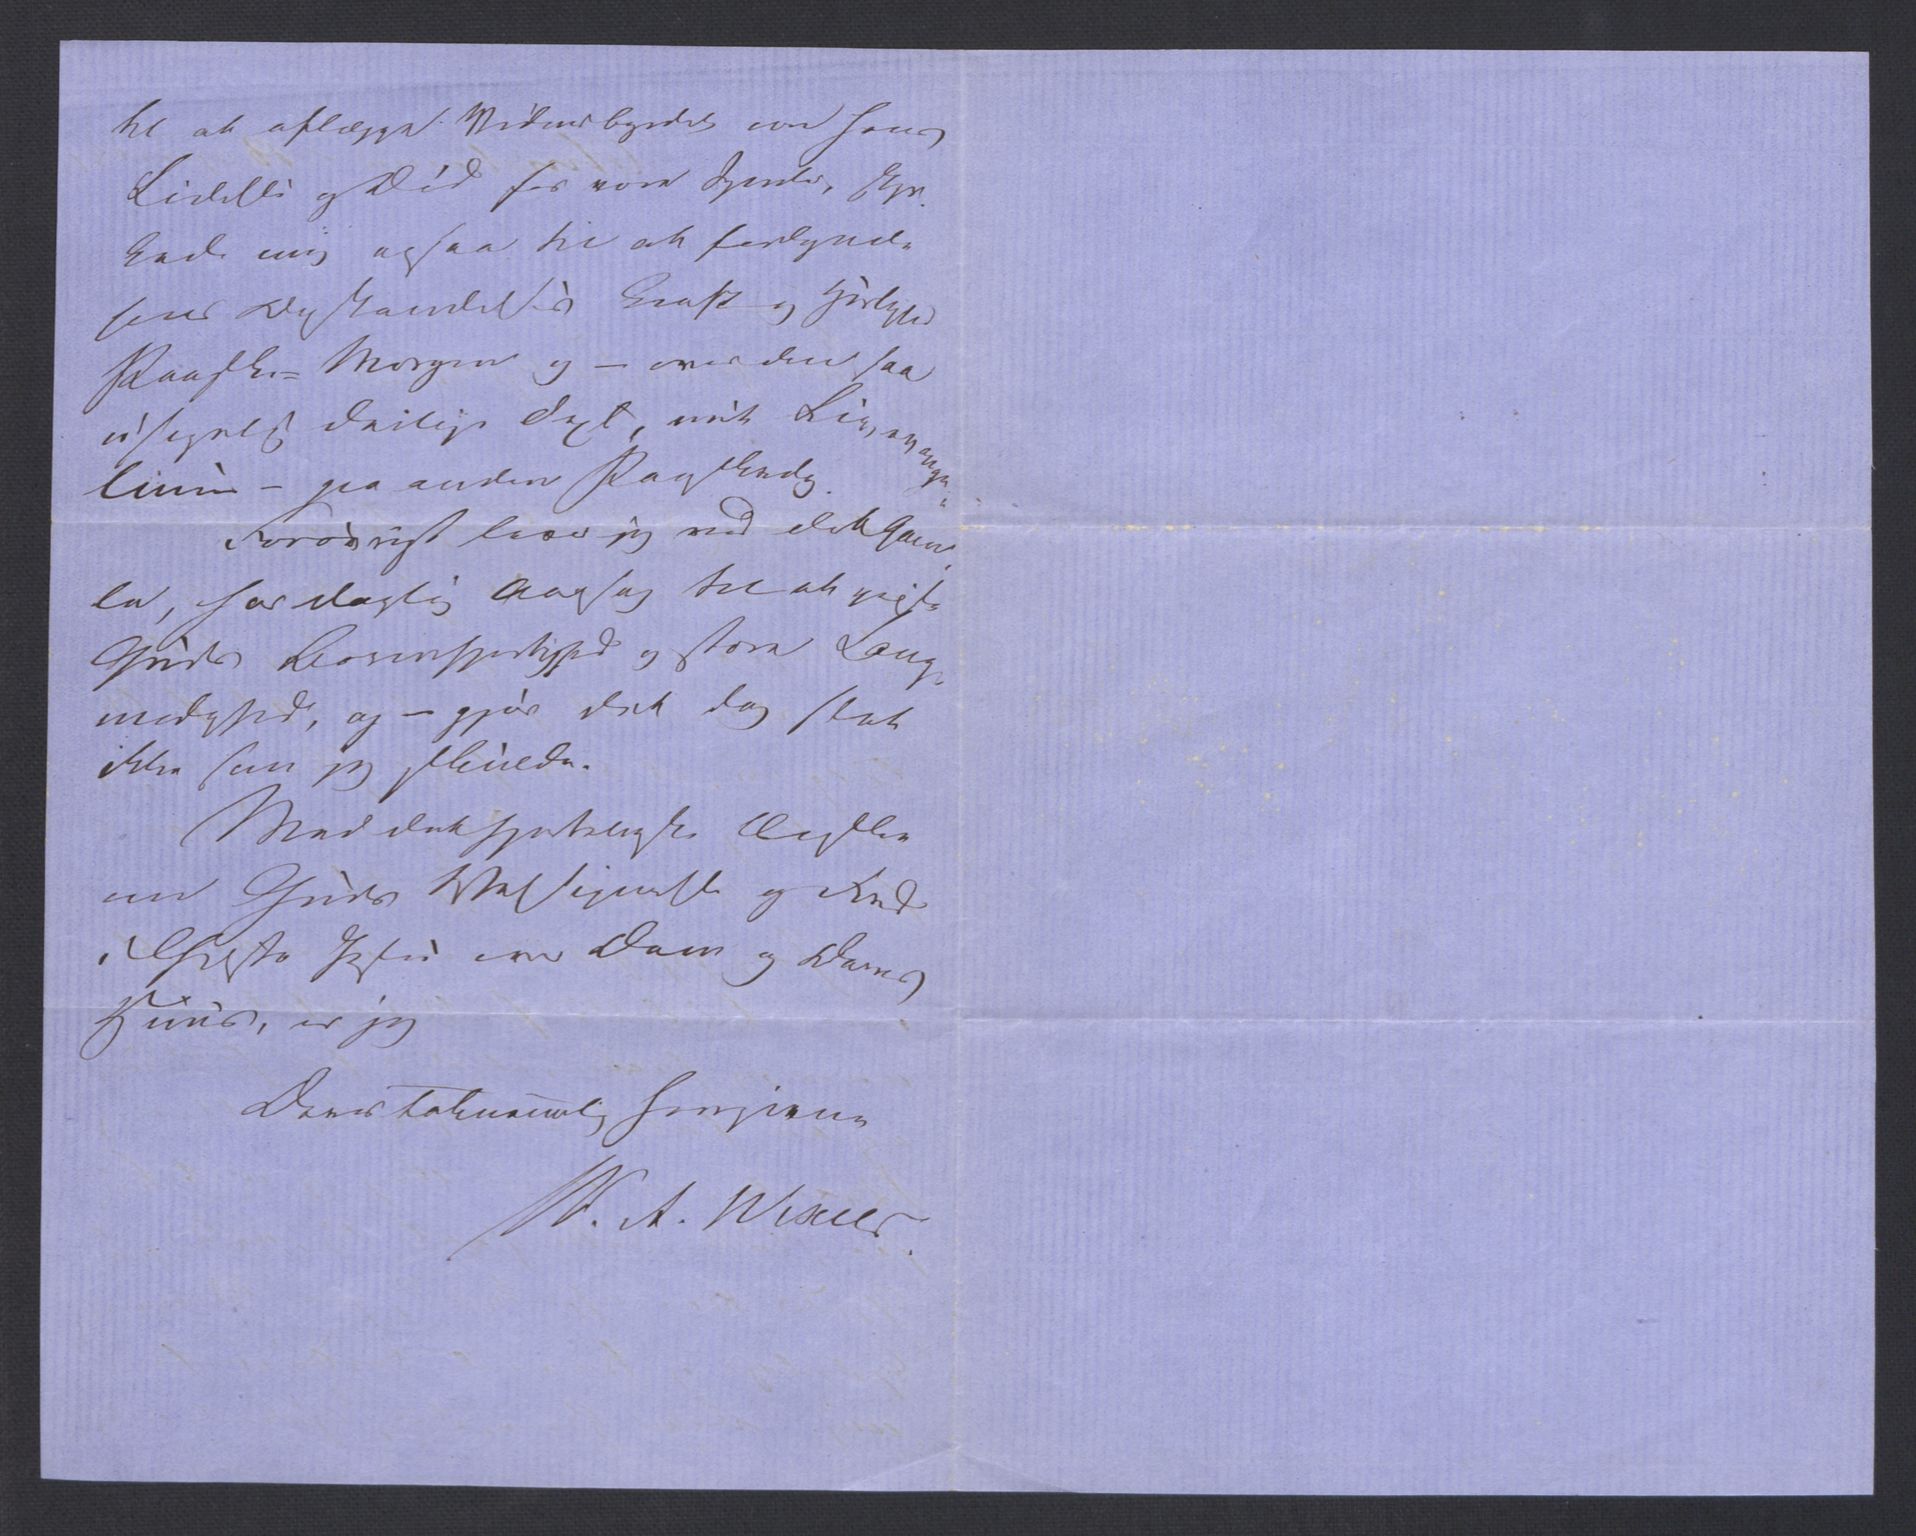 til at aflægge Vidnesbyrdet om hans
Lidelse og Død for vore Synder, styr-
kede mig ogsaa til at forkynde
hans Opstandelses Kraft og Herlighed
Paaske-Morgen og – over den saa
usigelig deilige Text, mit Liv, 
– paa anden Paaskedag.
Forøvrigt lever jeg ved det Gam-
le, har daglig Aarsag til at prise
Guds Barmhjertighed og store Lang-
modighed, og – gjør det dog slet
ikke som jeg skulde.
Med det hjerteligste Ønske
om Guds Velsignelse og Fred
i Christo Jesu over Dem og Deres
Huus, er jeg
Deres taknemmelig hengivne
W. A. Wexels.